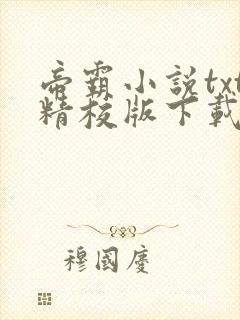 帝霸小説txt
精校版下載
穆國慶